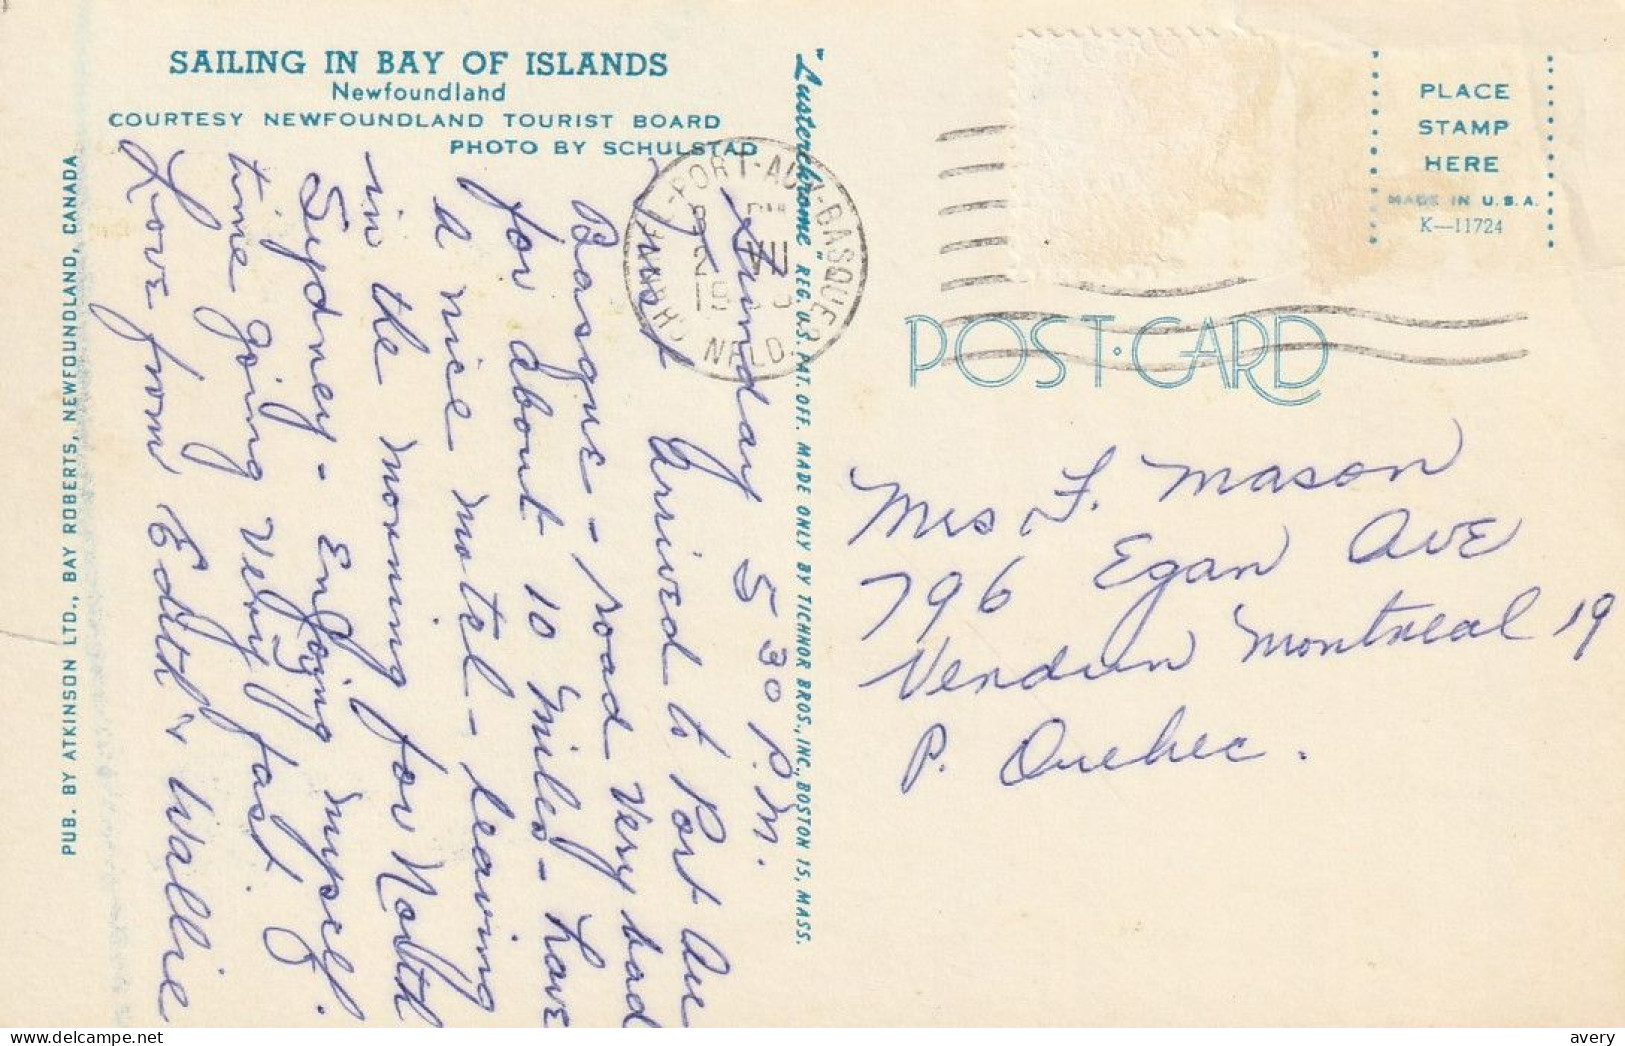 SAILING IN BAY OF ISLANDS
Newfoundland
COURTESY NEWFOUNDLAND TOURIST BOARD
PHOTO BY SCHULSTAD
PUB. BY ATKINSON LTD., BAY ROBERTS, NEWFOUNDLAND, CANADA
Sunday 5 30 P.M.
Just Arrived to Port Au
Basque - road Very bad
for about 10 miles - have
a nice motel - leaving
in the morning for North
Sydney - Enjoying myself.
time going Very fast.
Love from Edith & Wallie
"Lusterchrome" REG. U.S. PAT. OFF. MADE ONLY BY TICHNOR BROS., INC., BOSTON 15, MASS.
CHANNEL-PORT-AUX-BASQUES
NFLD.
PLACE
STAMP
HERE
MADE IN U.S.A.
K—11724
POST·CARD
Mrs F. Mason
796 Egan AvE
Verdun Montreal 19
P. Quebec.
avery
delcampe.net